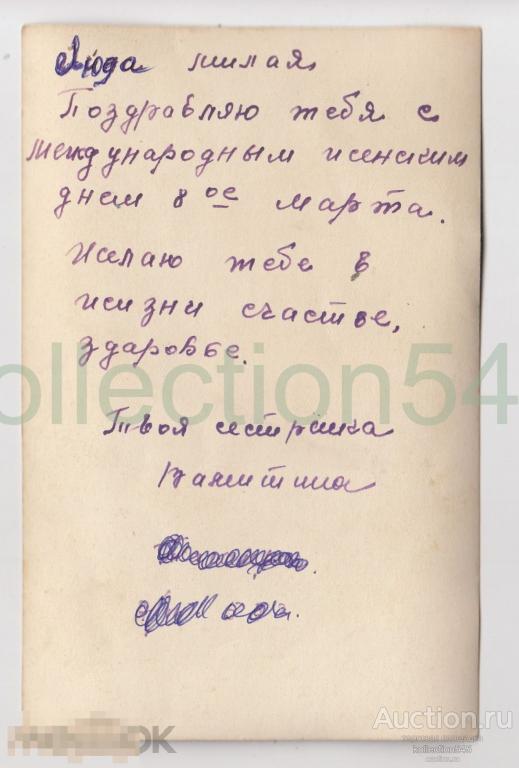 Люда милая
Поздравляю тебя с
международным женским
днем 8 ое марта.
Желаю тебе в
жизни счастье,
здаровье.
Твоя сестрička
Валентина
ollection54
Auction.ru
kollection545